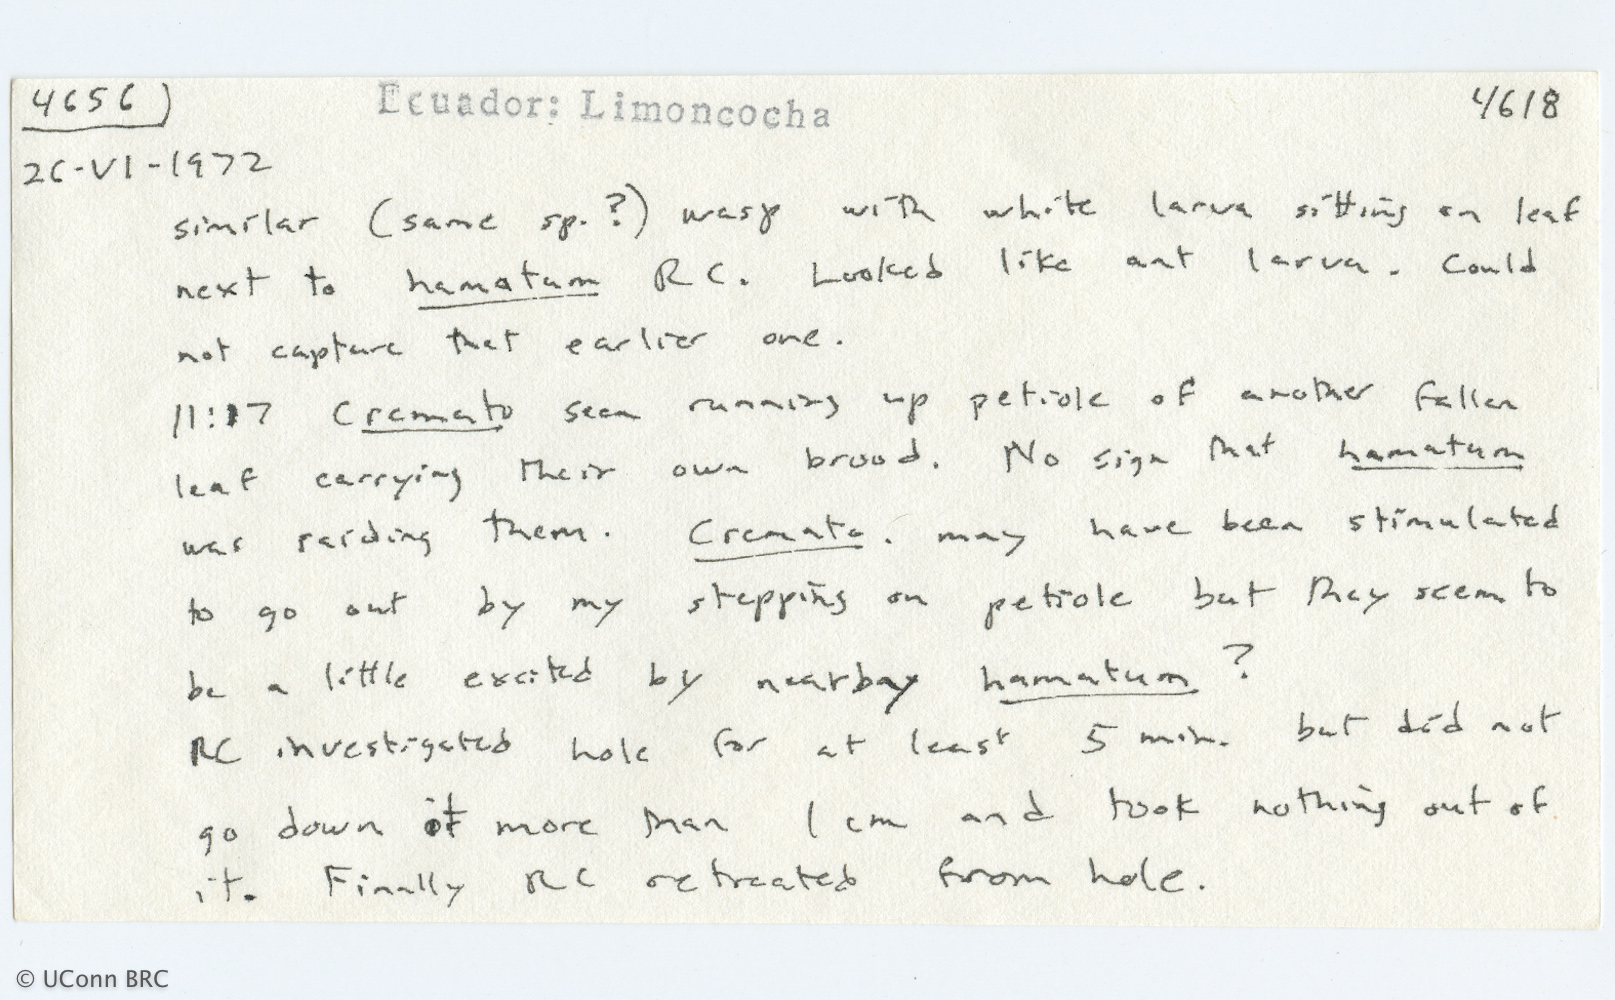 4656) Ecuador: Limoncocha 4618
26-VI-1972
similar (same sp.?) wasp with white larva sitting on leaf
next to hamatum RC. Looked like ant larva. Could
not capture that earlier one.
11:17 Cremato seen running up petiole of another fallen
leaf carrying their own brood. No sign that hamatum
was raiding them. Cremato. may have been stimulated
to go out by my stepping on petiole but they seem to
be a little excited by nearbay hamatum?
RC investigated hole for at least 5 min. but did not
go down it more than 1 cm and took nothing out of
it. Finally RC retreated from hole.
© UConn BRC